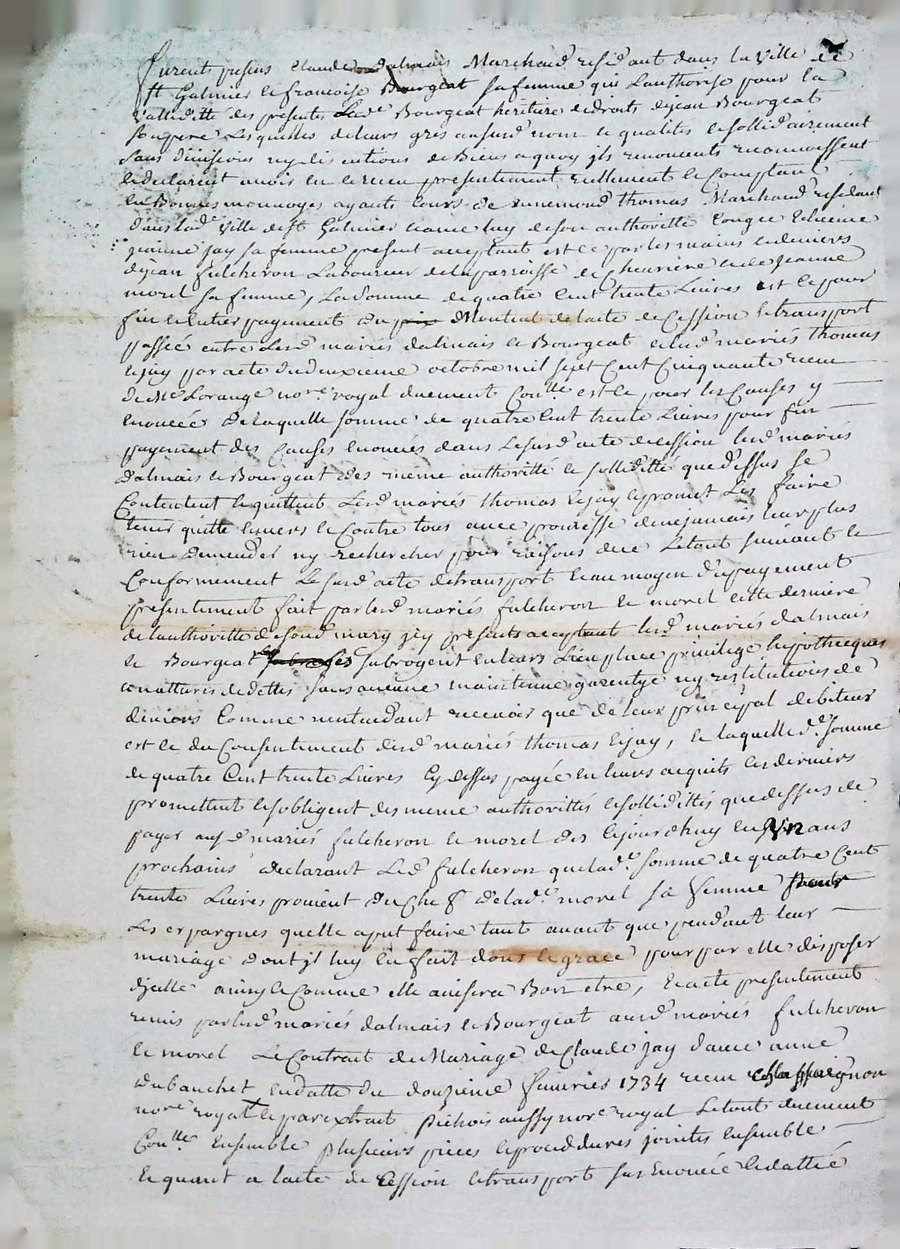 furent présens Claude dalmais Marchand residant dans la Ville de
st Galmier et francoise Bourgeat sa femme qui Lauthorise pour la
validitté des presentes Lade Bourgeat héritiere et droits de jean Bourgeat
son pere Lesquelles de leurs gres ausurd nom et qualités et sollidairement
sans divisions ny discutions de Biens a quoy jls renoncent reconnoissent
et declarent avois eu et receu presentement reellement et Comptant
en Bonnes monnoyes ayants Cours de rennemond thomas Marchand residant
dans lade Ville de st Galmier et avec luy de son authoritté Congée et licence
jeanne jay sa femme present acceptant est ce par les mains et deniers
de jean fulcheron Laboureur de la parroisse de Chevriere et de jeanne
morel sa femme, La Somme de quatre Cent trente Livres est ce pour
fin et entier payement du prix Montent de lacte de Cession et transport
passéé entre Lesd mariés dalmais et Bourgeat et lesd mariés thomas
et jay par acte du deuxieme octobre mil sept Cent Cinquante receu
de Me Lorange nore royal duement Conlle est ce pour les Causes y
enoncéé De laquelle somme de quatre Cent trente Livres pour fin
payement des Causes enoncés dans Le susd acte de cession lesd mariés
dalmais et Bourgeat des meme authoritté et solliditté que dessus se
Contentent et quittent Lesd mariés thomas et jay et promet Les faire
tenir quitte envers et Contre tous avec promesse de ne jamais leur plus
rien demender ny rechercher pour raisons de ce Le tout suivant et
Conformement Le susd acte de transport et au moyen du payement
presentement fait par lesd mariés fulcheron et morel cette derniere
de lauthoritté de sond mary jcy présents acceptant lesd mariés dalmais
et Bourgeat subrogent en leurs Lieu place privilege hipotheques
et natures de dettes sans aucune maintenue garentye ny restitutions de
deniers Comme nentendant recevoir que de leur principal debiteur
est ce du Consentement desd mariés thomas et jay, et laquelle de somme
de quatre Cent trente Livres Cy dessus payée en leurs acquits ces derniers
promettent et sobligent des meme authorittés et sollidittés que dessus de
payer ausd mariés fulcheron et morel des ce jourdhuy en Vn ans
prochains declarant Led fulcheron que lade somme de quatre Cent
trente Livres provient du Chef de lade morel sa femme pour
Les erpargnes quelle a put faire tant avant que pendant leur
mariage dont jl luy en fait dons et grace pour par elle disposer
dicelle ainsy et Comme elle avisera Bon etre, et acté presentement
remis par lesd mariés dalmais et Bourgeat ausd mariés fulcheron
et morel Le Contrat de Mariage de Claude jay davec anne
dubanchet en datte du douzieme fevries 1734 receu Chassaignon
nore royal et par extrait Pichois aussy nore royal Le tout duement
Conlle Ensemble plusieurs pieces et procedures jointes ensemble
et quant a lacte de Cession et transport sus enoncée et dattée